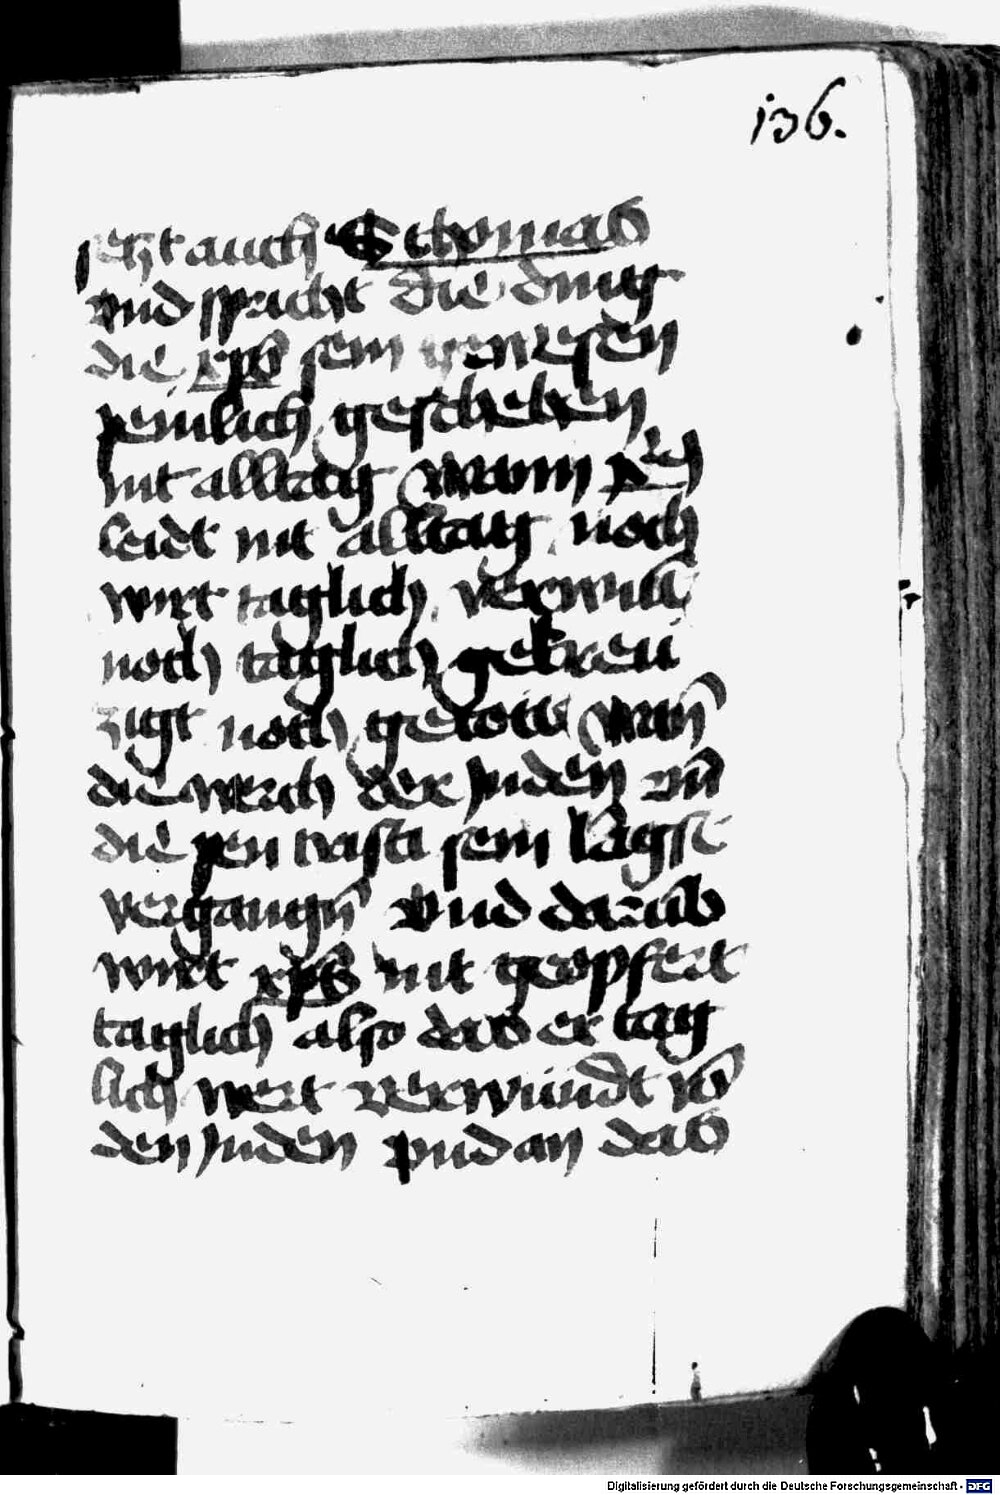 136.
setzt auch S thomas
vnd spricht die ding
die xps sein gewesen
peinlich geschehen
nit alltag wann
leidt nit alltag noch
wirt taglich verwūt
noch taglich gekreu
zigt noch getott wañ
die werch der Juden vñ
die pen cristi sein lāgst
vergangñ Vnd darūb
wirt xps nit geopfert
taglich also das er tag
lich wert verwundt võ
den Juden vnd an das
Digitalisierung gefördert durch die Deutsche Forschungsgemeinschaft - DFG